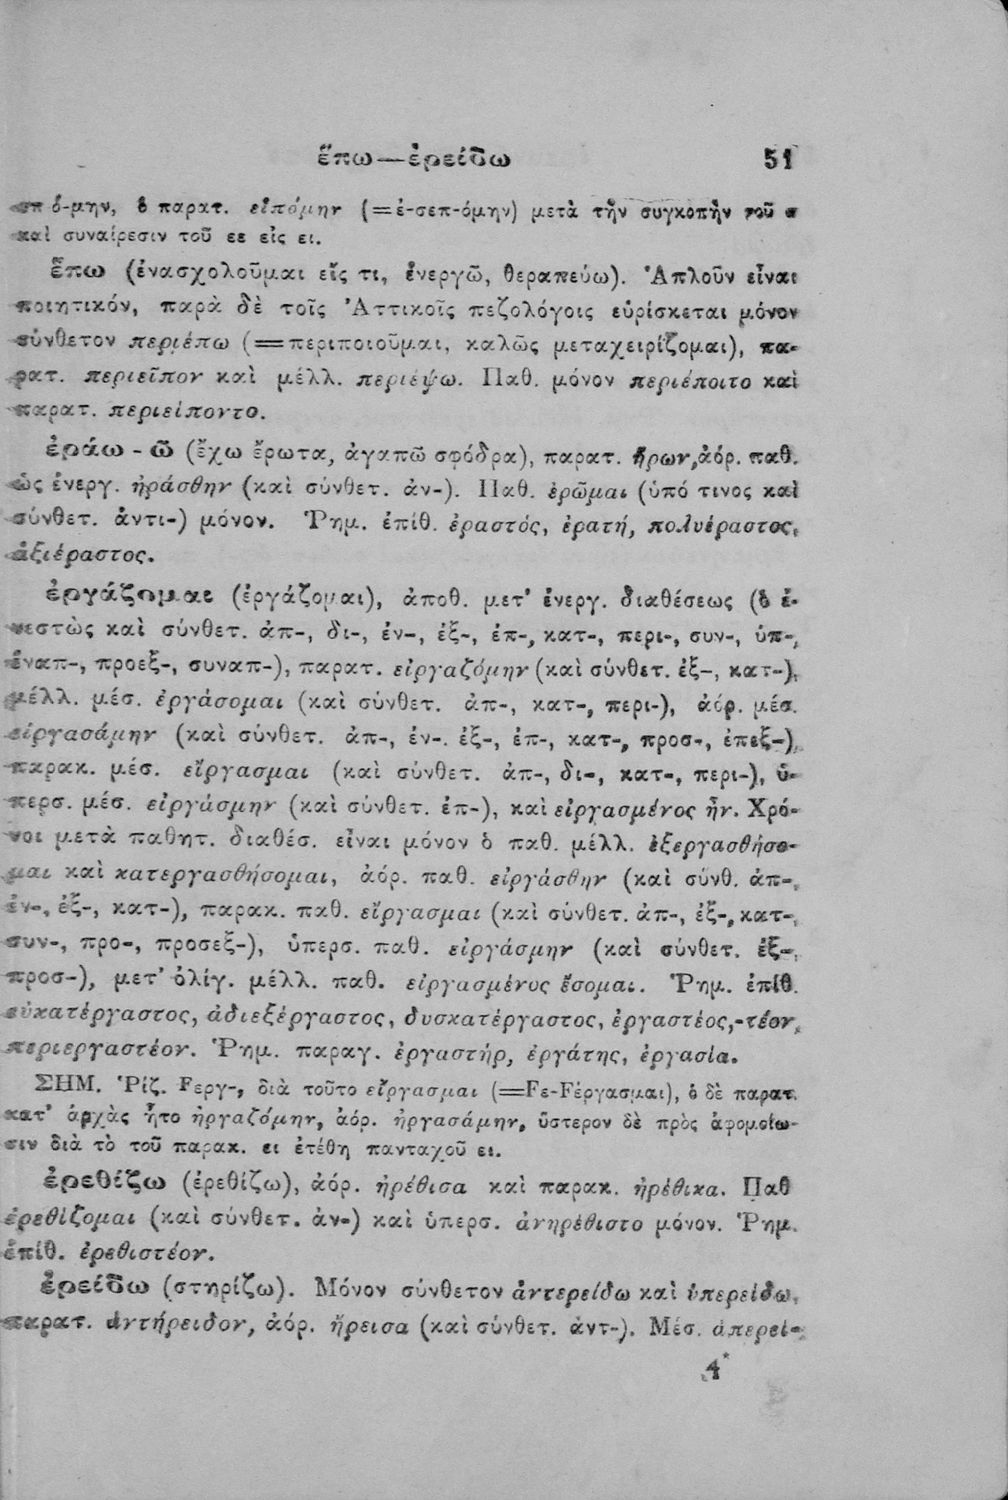 ἕπω—ἐρείδω 51
σπ ό-μην, ὁ παρατ. εἱπόμην (=ἐ-σεπ-όμην) μετὰ τὴν συγκοπὴν τοῦ σ
καὶ συναίρεσιν τοῦ εε εἰς ει.
ἕπω (ἐνασχολοῦμαι εἴς τι, ἐνεργῶ, θεραπεύω). Ἁπλοῦν εἶναι
ποιητικόν, παρὰ δὲ τοῖς Ἀττικοῖς πεζολόγοις εὑρίσκεται μόνον
σύνθετον περιέπω (=περιποιοῦμαι, καλῶς μεταχειρίζομαι), πα-
ρατ. περιεῖπον καὶ μέλλ. περιέψω. Παθ. μόνον περιέποιτο καὶ
παρατ. περιείποντο.
ἐράω - ῶ (ἔχω ἔρωτα, ἀγαπῶ σφόδρα), παρατ. ἤρων, ἀόρ. παθ.
ὡς ἐνεργ. ἠράσθην (καὶ σύνθετ. ἀν-). Παθ. ἐρῶμαι (ὑπό τινος καὶ
σύνθετ. ἀντι-) μόνον. Ῥημ. ἐπίθ. ἐραστός, ἐρατή, πολυέραστος,
ἀξιέραστος.
ἐργάζομαι (ἐργάζομαι), ἀποθ. μετ' ἐνεργ. διαθέσεως (ὁ ἐ-
νεστὼς καὶ σύνθετ. ἀπ-, δι-, ἐν-, ἐξ-, ἐπ-, κατ-, περι-, συν-, ὑπ-,
ἐναπ-, προεξ-, συναπ-), παρατ. εἰργαζόμην (καὶ σύνθετ. ἐξ-, κατ-),
μέλλ. μέσ. ἐργάσομαι (καὶ σύνθετ. ἀπ-, κατ-, περι-), ἀόρ. μέσ.
εἰργασάμην (καὶ σύνθετ. ἀπ-, ἐν-. ἐξ-, ἐπ-, κατ-, προσ-, ἐπεξ-),
παρακ. μέσ. εἴργασμαι (καὶ σύνθετ. ἀπ-, δι-, κατ-, περι-), ὑ-
περσ. μέσ. εἰργάσμην (καὶ σύνθετ. ἐπ-), καὶ εἰργασμένος ἦν. Χρό-
νοι μετὰ παθητ. διαθέσ. εἶναι μόνον ὁ παθ. μέλλ. ἐξεργασθήσο-
μαι καὶ κατεργασθήσομαι, ἀόρ. παθ. εἰργάσθην (καὶ σύνθ. ἀπ-,
ἐν-, ἐξ-, κατ-), παρακ. παθ. εἴργασμαι (καὶ σύνθετ. ἀπ-, ἐξ-, κατ-,
συν-, προ-, προσεξ-), ὑπερσ. παθ. εἰργάσμην (καὶ σύνθετ. ἐξ-,
προσ-), μετ' ὀλίγ. μέλλ. παθ. εἰργασμένος ἔσομαι. Ῥημ. ἐπίθ.
εὐκατέργαστος, ἀδιεξέργαστος, δυσκατέργαστος, ἐργαστέος,-τέον,
περιεργαστέον. Ῥημ. παραγ. ἐργαστήρ, ἐργάτης, ἐργασία.
ΣΗΜ. Ῥίζ. Ϝεργ-, διὰ τοῦτο εἴργασμαι (=Ϝε-Ϝέργασμαι), ὁ δὲ παρατ.
κατ' ἀρχὰς ἦτο ἠργαζόμην, ἀόρ. ἠργασάμην, ὕστερον δὲ πρὸς ἀφομοίω-
σιν διὰ τὸ τοῦ παρακ. ει ἐτέθη πανταχοῦ ει.
ἐρεθίζω (ἐρεθίζω), ἀόρ. ἠρέθισα καὶ παρακ. ἠρέθικα. Παθ
ἐρεθίζομαι (καὶ σύνθετ. ἀν-) καὶ ὑπερσ. ἀνηρέθιστο μόνον. Ῥημ.
ἐπίθ. ἐρεθιστέον.
ἐρείδω (στηρίζω). Μόνον σύνθετον ἀντερείδω καὶ ὑπερείδω,
παρατ. ἀντήρειδον, ἀόρ. ἤρεισα (καὶ σύνθετ. ἀντ-). Μέσ. ἀπερεί-
4*